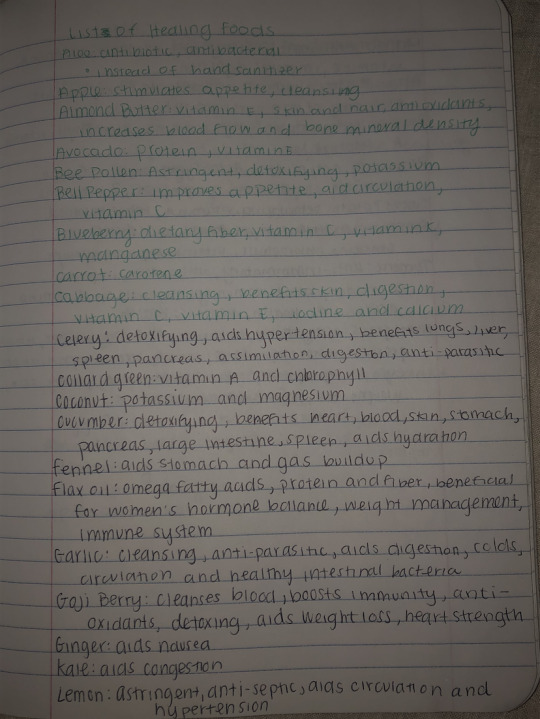 List of Healing Foods
Aloe: antibiotic, antibacterial
• instead of hand sanitizer
Apple: stimulates appetite, cleansing
Almond Butter: vitamin E, skin and hair, antioxidants,
increases blood flow and bone mineral density
Avocado: protein, vitamin E
Bee Pollen: Astringent, detoxifying, potassium
Bell Pepper: improves appetite, aid circulation,
vitamin C
Blueberry: dietary fiber, vitamin C, vitamin K,
manganese
Carrot: carotene
Cabbage: cleansing, benefits skin, digestion,
vitamin C, vitamin E, iodine and calcium
Celery: detoxifying, aids hypertension, benefits lungs, liver,
spleen, pancreas, assimilation, digeston, anti-parasitic
Collard green: vitamin A and chlorophyll
Coconut: potassium and magnesium
Cucumber: detoxifying, benefits heart, blood, skin, stomach,
pancreas, large intestine, spleen, aids hydration
Fennel: aids stomach and gas buildup
Flax oil: omega fatty acids, protein and fiber, beneficial
for women's hormone balance, weight management,
immune system
Garlic: cleansing, anti-parasitic, aids digestion, colds,
circulation and healthy intestinal bacteria
Goji Berry: cleanses blood, boosts immunity, anti-
oxidants, detoxing, aids weight loss, heart strength
Ginger: aids nausea
Kale: aids congestion
Lemon: astringent, anti-septic, aids circulation and
hypertension